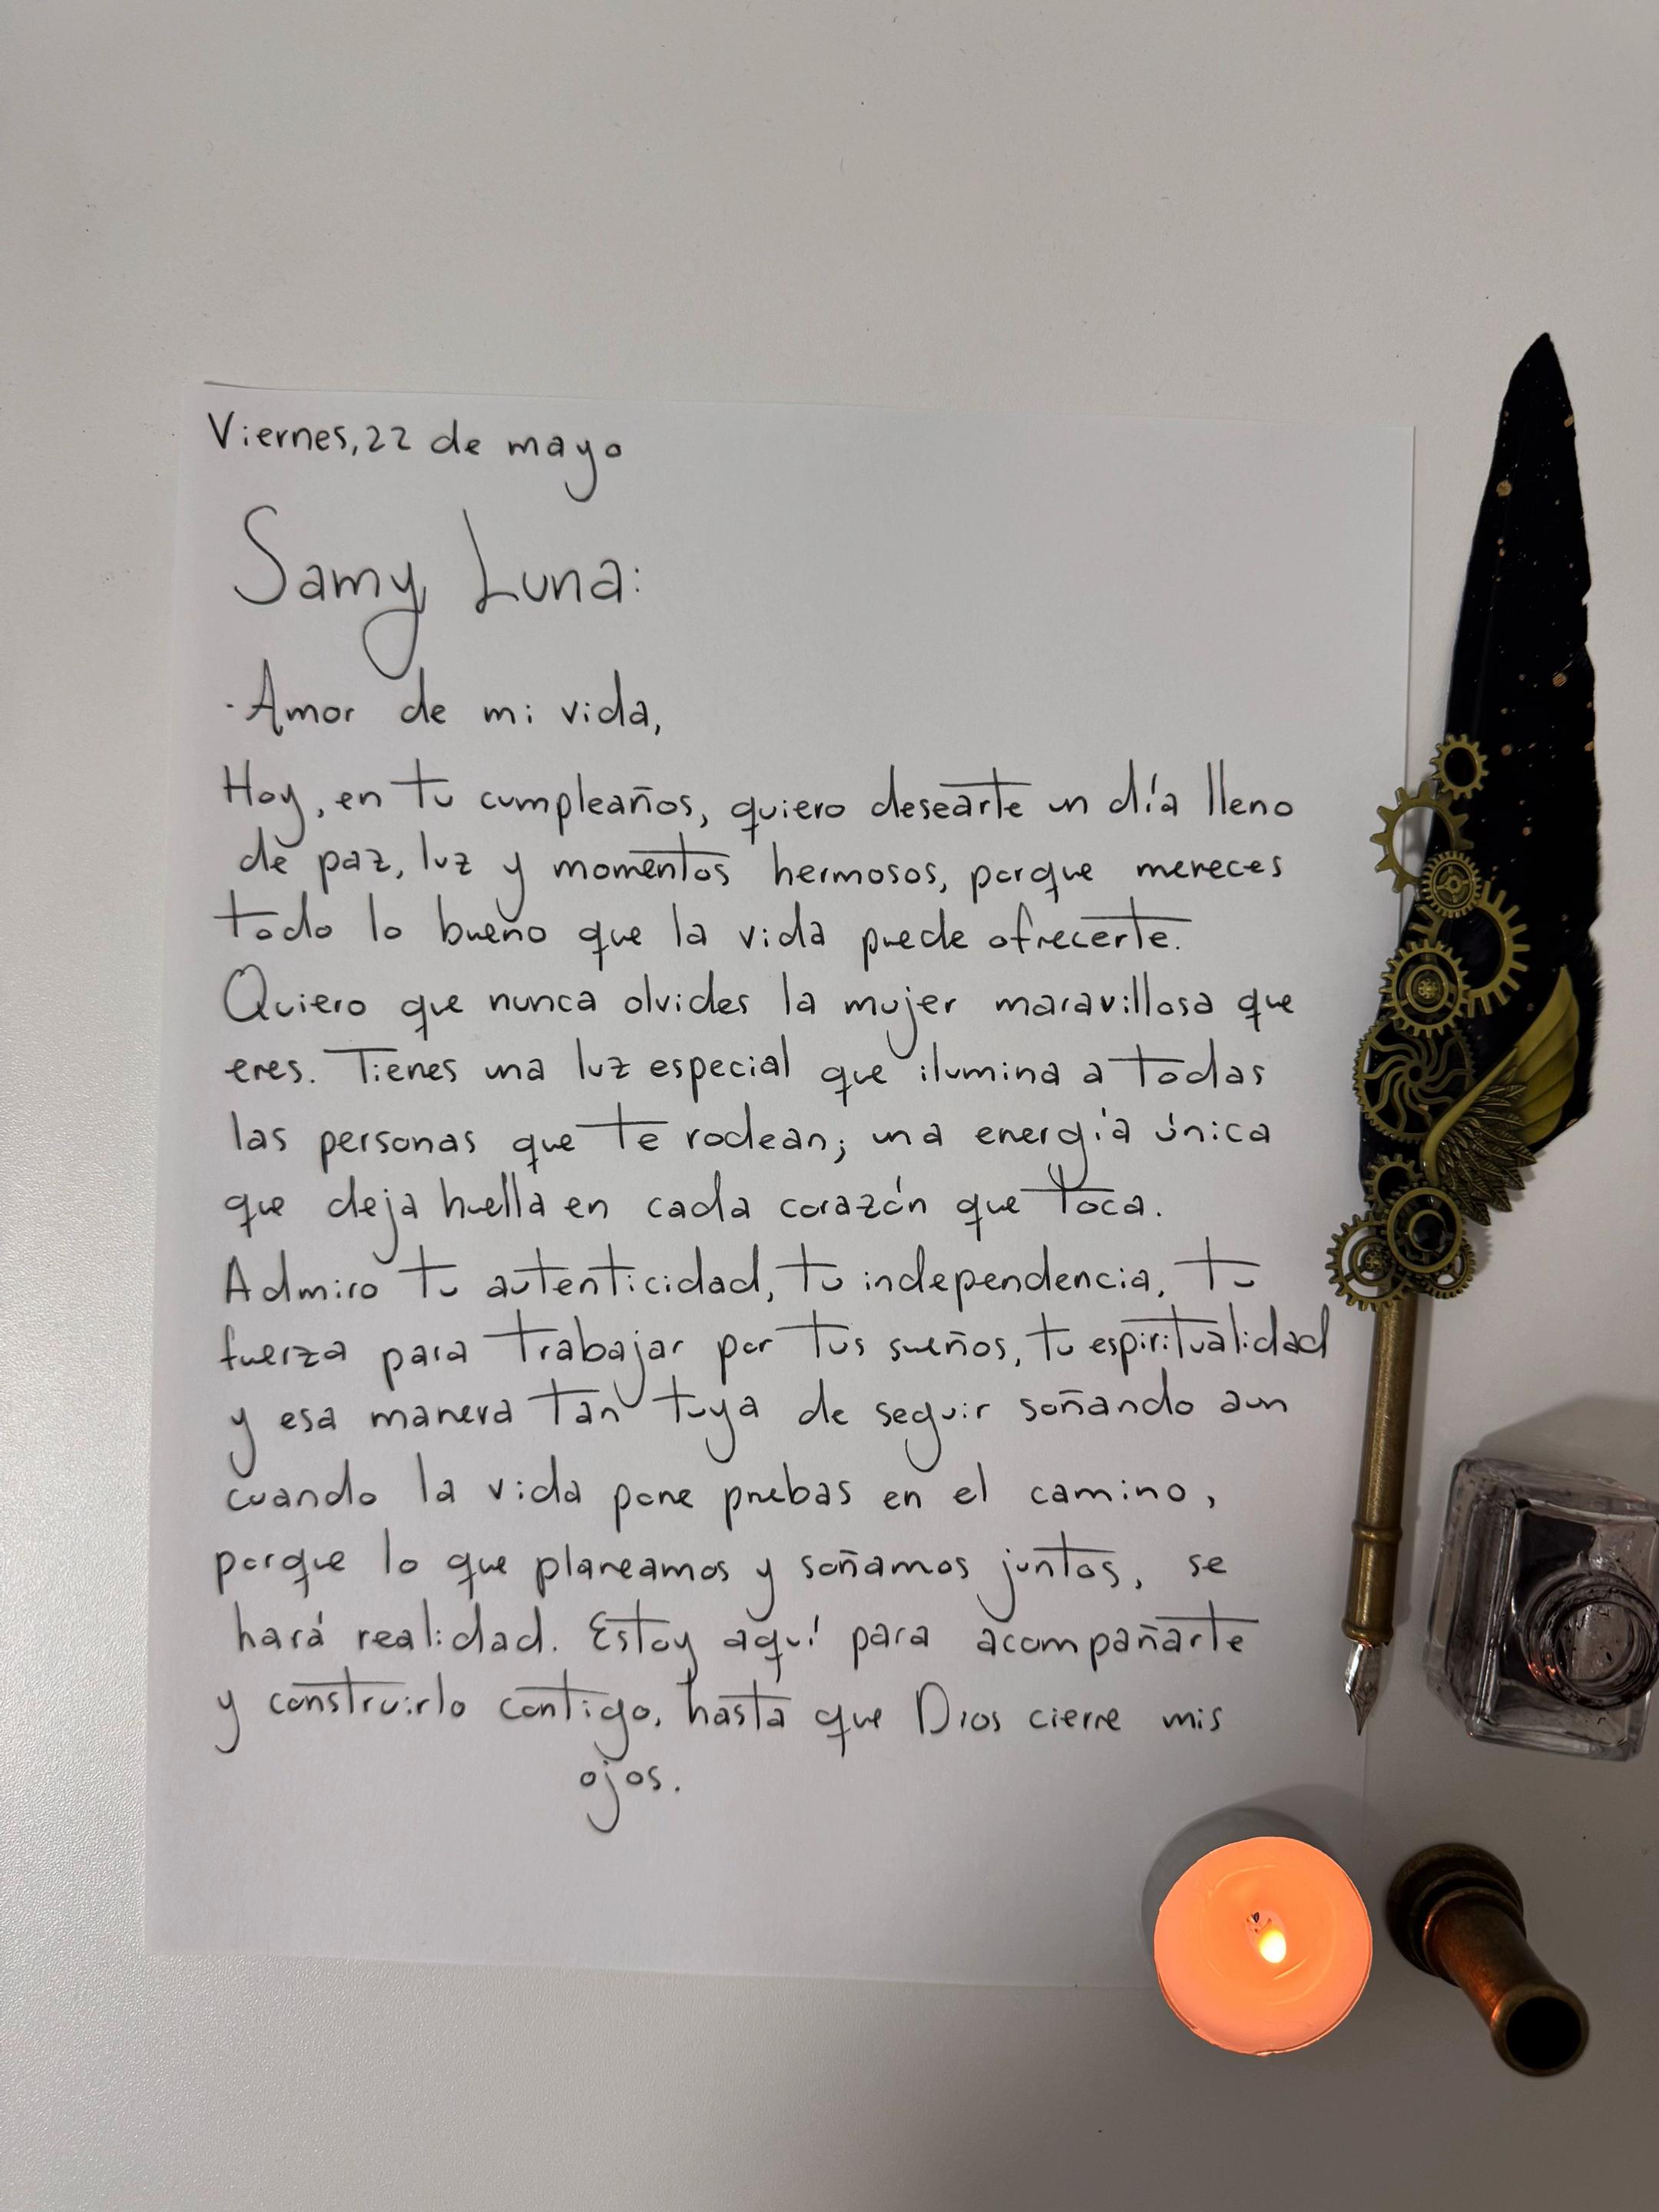 Viernes, 22 de mayo
Samy Luna:
-Amor de mi vida,
Hoy, en tu cumpleaños, quiero desearte un día lleno
de paz, luz y momentos hermosos, porque mereces
todo lo bueno que la vida puede ofrecerte.
Quiero que nunca olvides la mujer maravillosa que
eres. Tienes una luz especial que ilumina a todas
las personas que te rodean; una energía única
que deja huella en cada corazón que toca.
Admiro tu autenticidad, tu independencia, tu
fuerza para trabajar por tus sueños, tu espiritualidad
y esa manera tan tuya de seguir soñando aun
cuando la vida pone pruebas en el camino,
porque lo que planeamos y soñamos juntos, se
hará realidad. Estoy aquí para acompañarte
y construirlo contigo, hasta que Dios cierre mis
ojos.